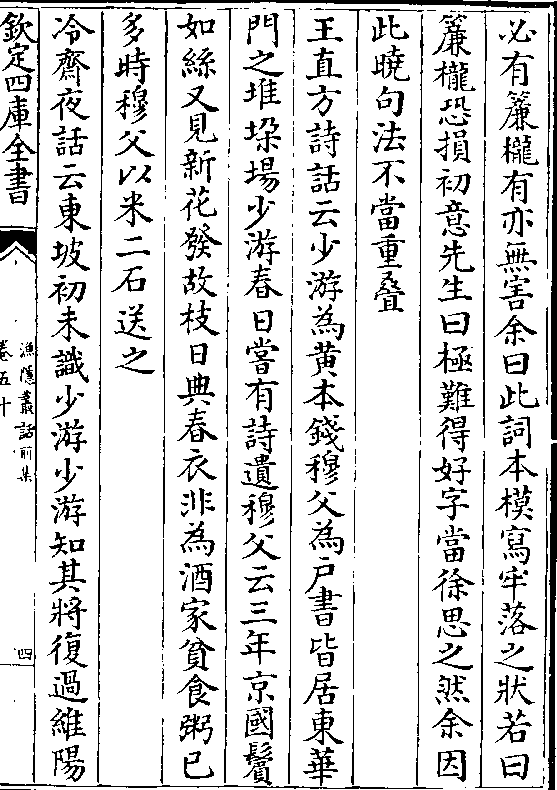 必有簾櫳有亦無害余曰此詞本模寫牢落之狀若曰
簾櫳恐損初意先生曰極難得好字當徐思之然余因
此曉句法不當重疊
王直方詩話云少游為黄本錢穆父為户書皆居東華
門之堆垜場少游春日嘗有詩遺穆父云三年京國鬢
如絲又見新花發故枝日典春衣非為酒家貧食粥已
多時穆父以米二石送之
冷齋夜話云東坡初未識少游少游知其將復過維陽
欽定四庫全書
漁隱叢話前集
卷五十
四